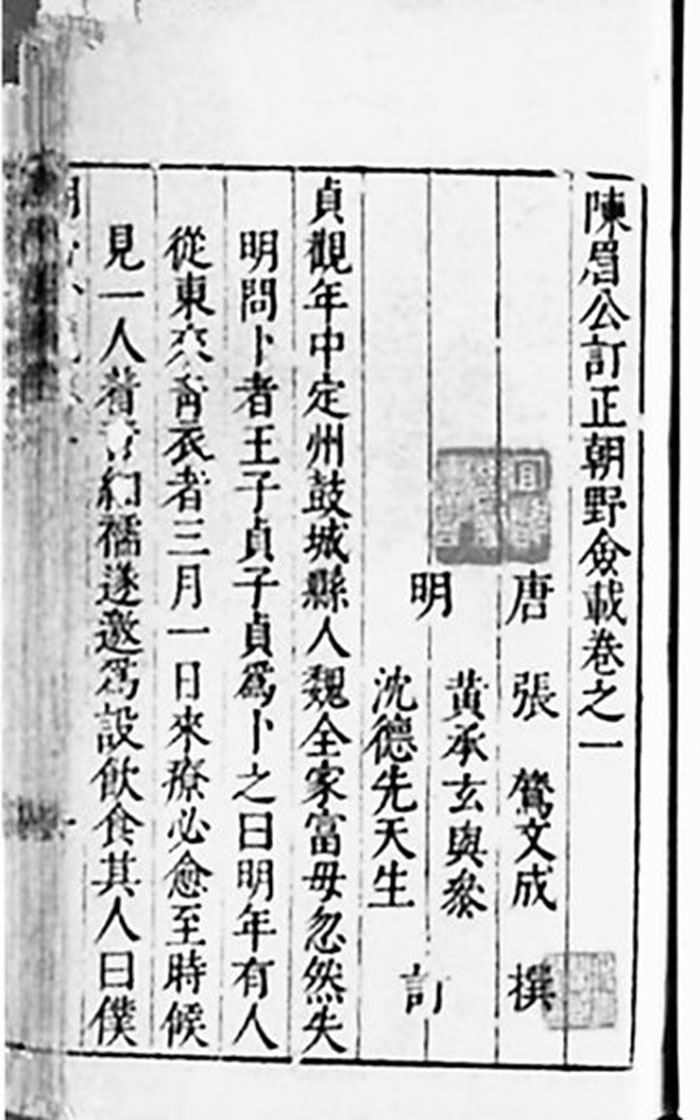 陳眉公訂正朝野僉載卷之一
唐 張 鷟文成 撰
明 黃承玄與參
沈德先天生 訂
貞觀年中定州鼓城縣人魏全家富母忽然失
明問卜者王子貞子貞爲卜之曰明年有人
從東來青衣者三月一日來療必愈至時候
見一人着青紬襦遂邀爲設飲食其人曰僕